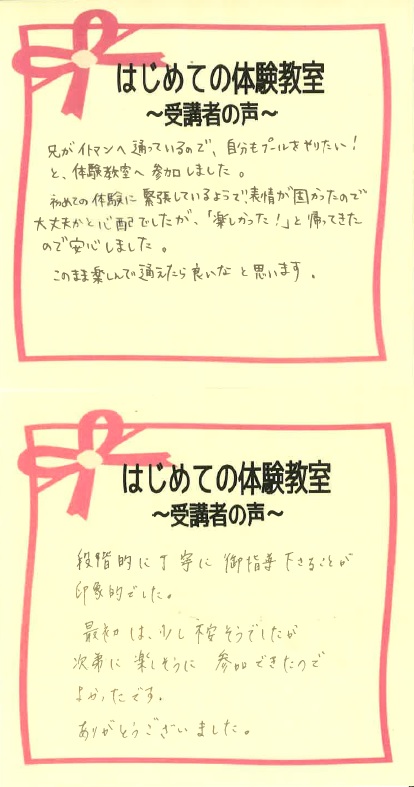 はじめての体験教室
～受講者の声～
兄がイトマンへ通っているので、自分もプールをやりたい！
と、体験教室へ参加しました。
初めての体験に緊張しているようで、表情が固かったので
大丈夫かと心配でしたが、「楽しかった！」と帰ってきた
ので安心しました。
このまま楽しんで通えたら良いなと思います。
はじめての体験教室
～受講者の声～
段階的に丁寧に御指導下さることが
印象的でした。
最初は、少し不安そうでしたが
次第に楽しそうに参加できたので
よかったです。
ありがとうございました。